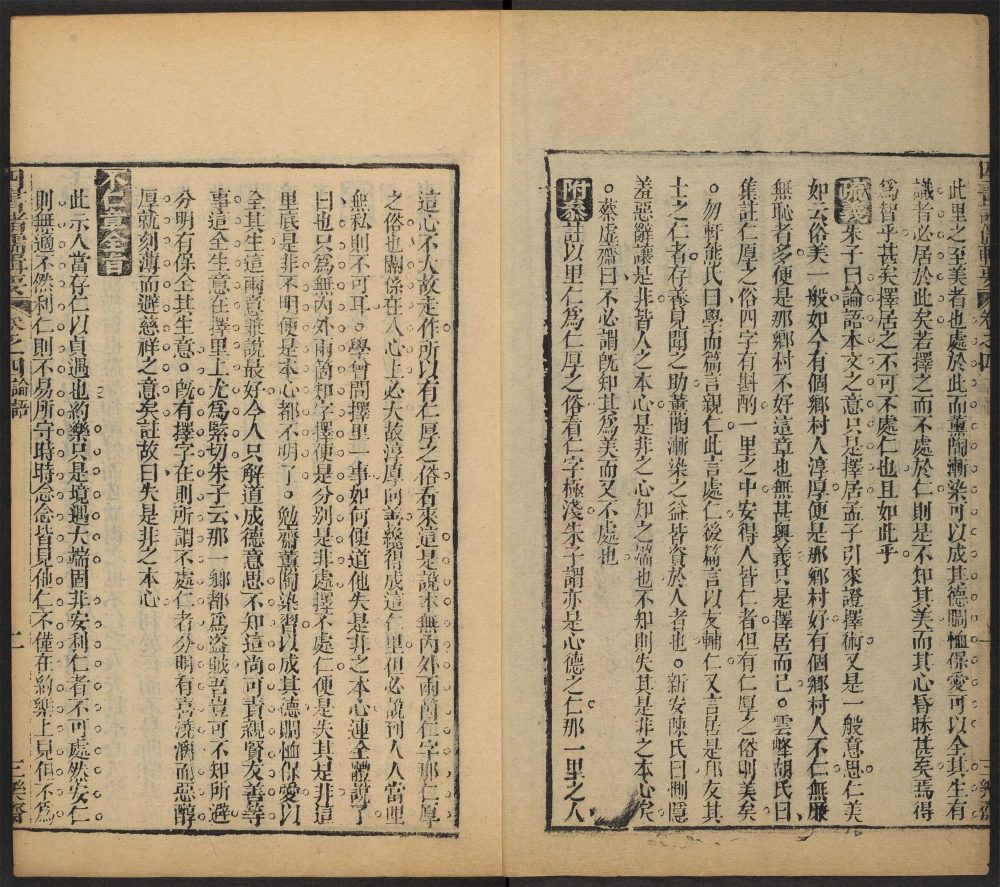 此里之至美者也處於此而薰陶漸染可以成其德賙恤保愛可以全其生有
識者必居於此矣若擇之而不處於仁則是不知其美而其心昏昧甚矣焉得
為智乎甚矣擇居之不可不處仁也且如此乎
朱子曰論語本文之意只是擇居孟子引來證擇術又是一般意思仁美
如云俗美一般如今有個鄉村人淳厚便是那鄉村好有個鄉村人不仁無廉
無恥者多便是那鄉村不好這章也無甚奧義只是擇居而已。雲峰胡氏曰
集註仁厚之俗四字有斟酌一里之中安得人皆仁者但有仁厚之俗則美矣
。勿軒熊氏曰學而篇言親仁此言處仁後篇言以友輔仁又言居是邦友其
士之仁者存養見聞之助薰陶漸染之益皆資於人者也。新安陳氏曰惻隱
羞惡辭讓是非皆人之本心是非之心知之端也不知則失其是非之本心矣
。蔡虛齋曰不必謂既知其為美而又不處也
附叅註以里仁為仁厚之俗看仁字極淺朱子謂亦是心德之仁那一里之人
這心不大故走作所以有仁厚之俗看來這是說本無內外兩箇仁字那仁厚
之俗也關係在人心上必大故淳厚向善纔得成這仁里但必說到人人當理
無私則不可耳。學曾問擇里一事如何便道他失是非之本心連全體說了
曰也只為無內外兩箇知字擇便是分別是非處擇不處仁便是失其是非這
里底是非不明便是本心都不明了。勉齋薰陶染習以成其德賙恤保愛以
全其生這兩意兼說最好今人只解道成德意思不知這尚可責親賢友善等
事這全生意在擇里上尤為緊切朱子云那一鄉都為盜賊吾豈可不知所避
分明有保全其生意。既有擇字在則所謂不處仁者分明有喜澆漓而惡醇
厚就刻薄而避慈祥之意矣註故曰失是非之本心
不仁章全旨
此示人當存仁以貞遇也約樂只是境遇大端固非安利仁者不可處然安仁
則無適不然利仁則不易所守時時念念皆見他仁不僅在約樂上見但不為